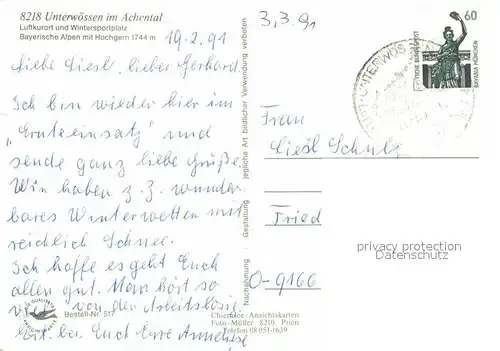 8218 Unterwössen im Achental
Luftkurort und Wintersportplatz
Bayerische Alpen mit Hochgern 1744 m
19.2.91
Liebe Liesl, lieber Gerhard.
Ich bin wieder hier im
"Ernteeinsatz" und
sende ganz liebe Grüße.
Wir haben z.Z. wunder
bares Winterwetter mit
reichlich Schnee.
Ich hoffe es geht Euch
allen gut. Man hört so
von der Arbeitslosig
bei Euch. Eure Anneliese
Bestell-Nr. 517
Chiemsee-Ansichtskarten
Foto-Müller 8210 Prien
Telefon 08 051-1639
Nachahmung Gestaltung jegliche Art bildlicher Verwendung verboten
3,3.91
UNTERWÖS
60
DEUTSCHE BUNDESPOST
BAVARIA MÜNCHEN
Frau
Liesl Schulz
Fried
O-9166
privacy protection
Datenschutz